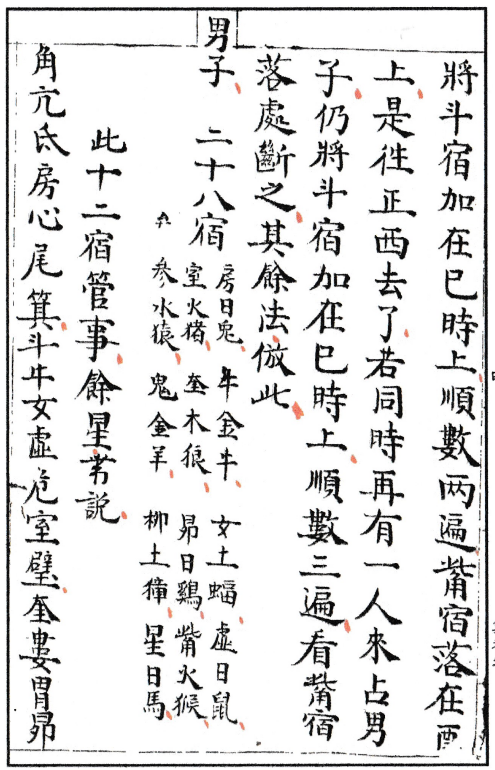 將斗宿加在巳時上順數两遍觜宿落在酉
上是徃正西去了若同時再有一人來占男
子仍將斗宿加在巳時上順數三遍看觜宿
落處斷之其餘法倣此
男子 二十八宿
房日兔 牛金牛 女土蝠 虛日鼠
室火猪 奎木狼 昴日鷄 觜火猴
参水猿 鬼金羊 柳土獐 星日馬
此十二宿管事餘星説
角亢氐房心尾箕斗牛女虛危室壁奎婁胃昴